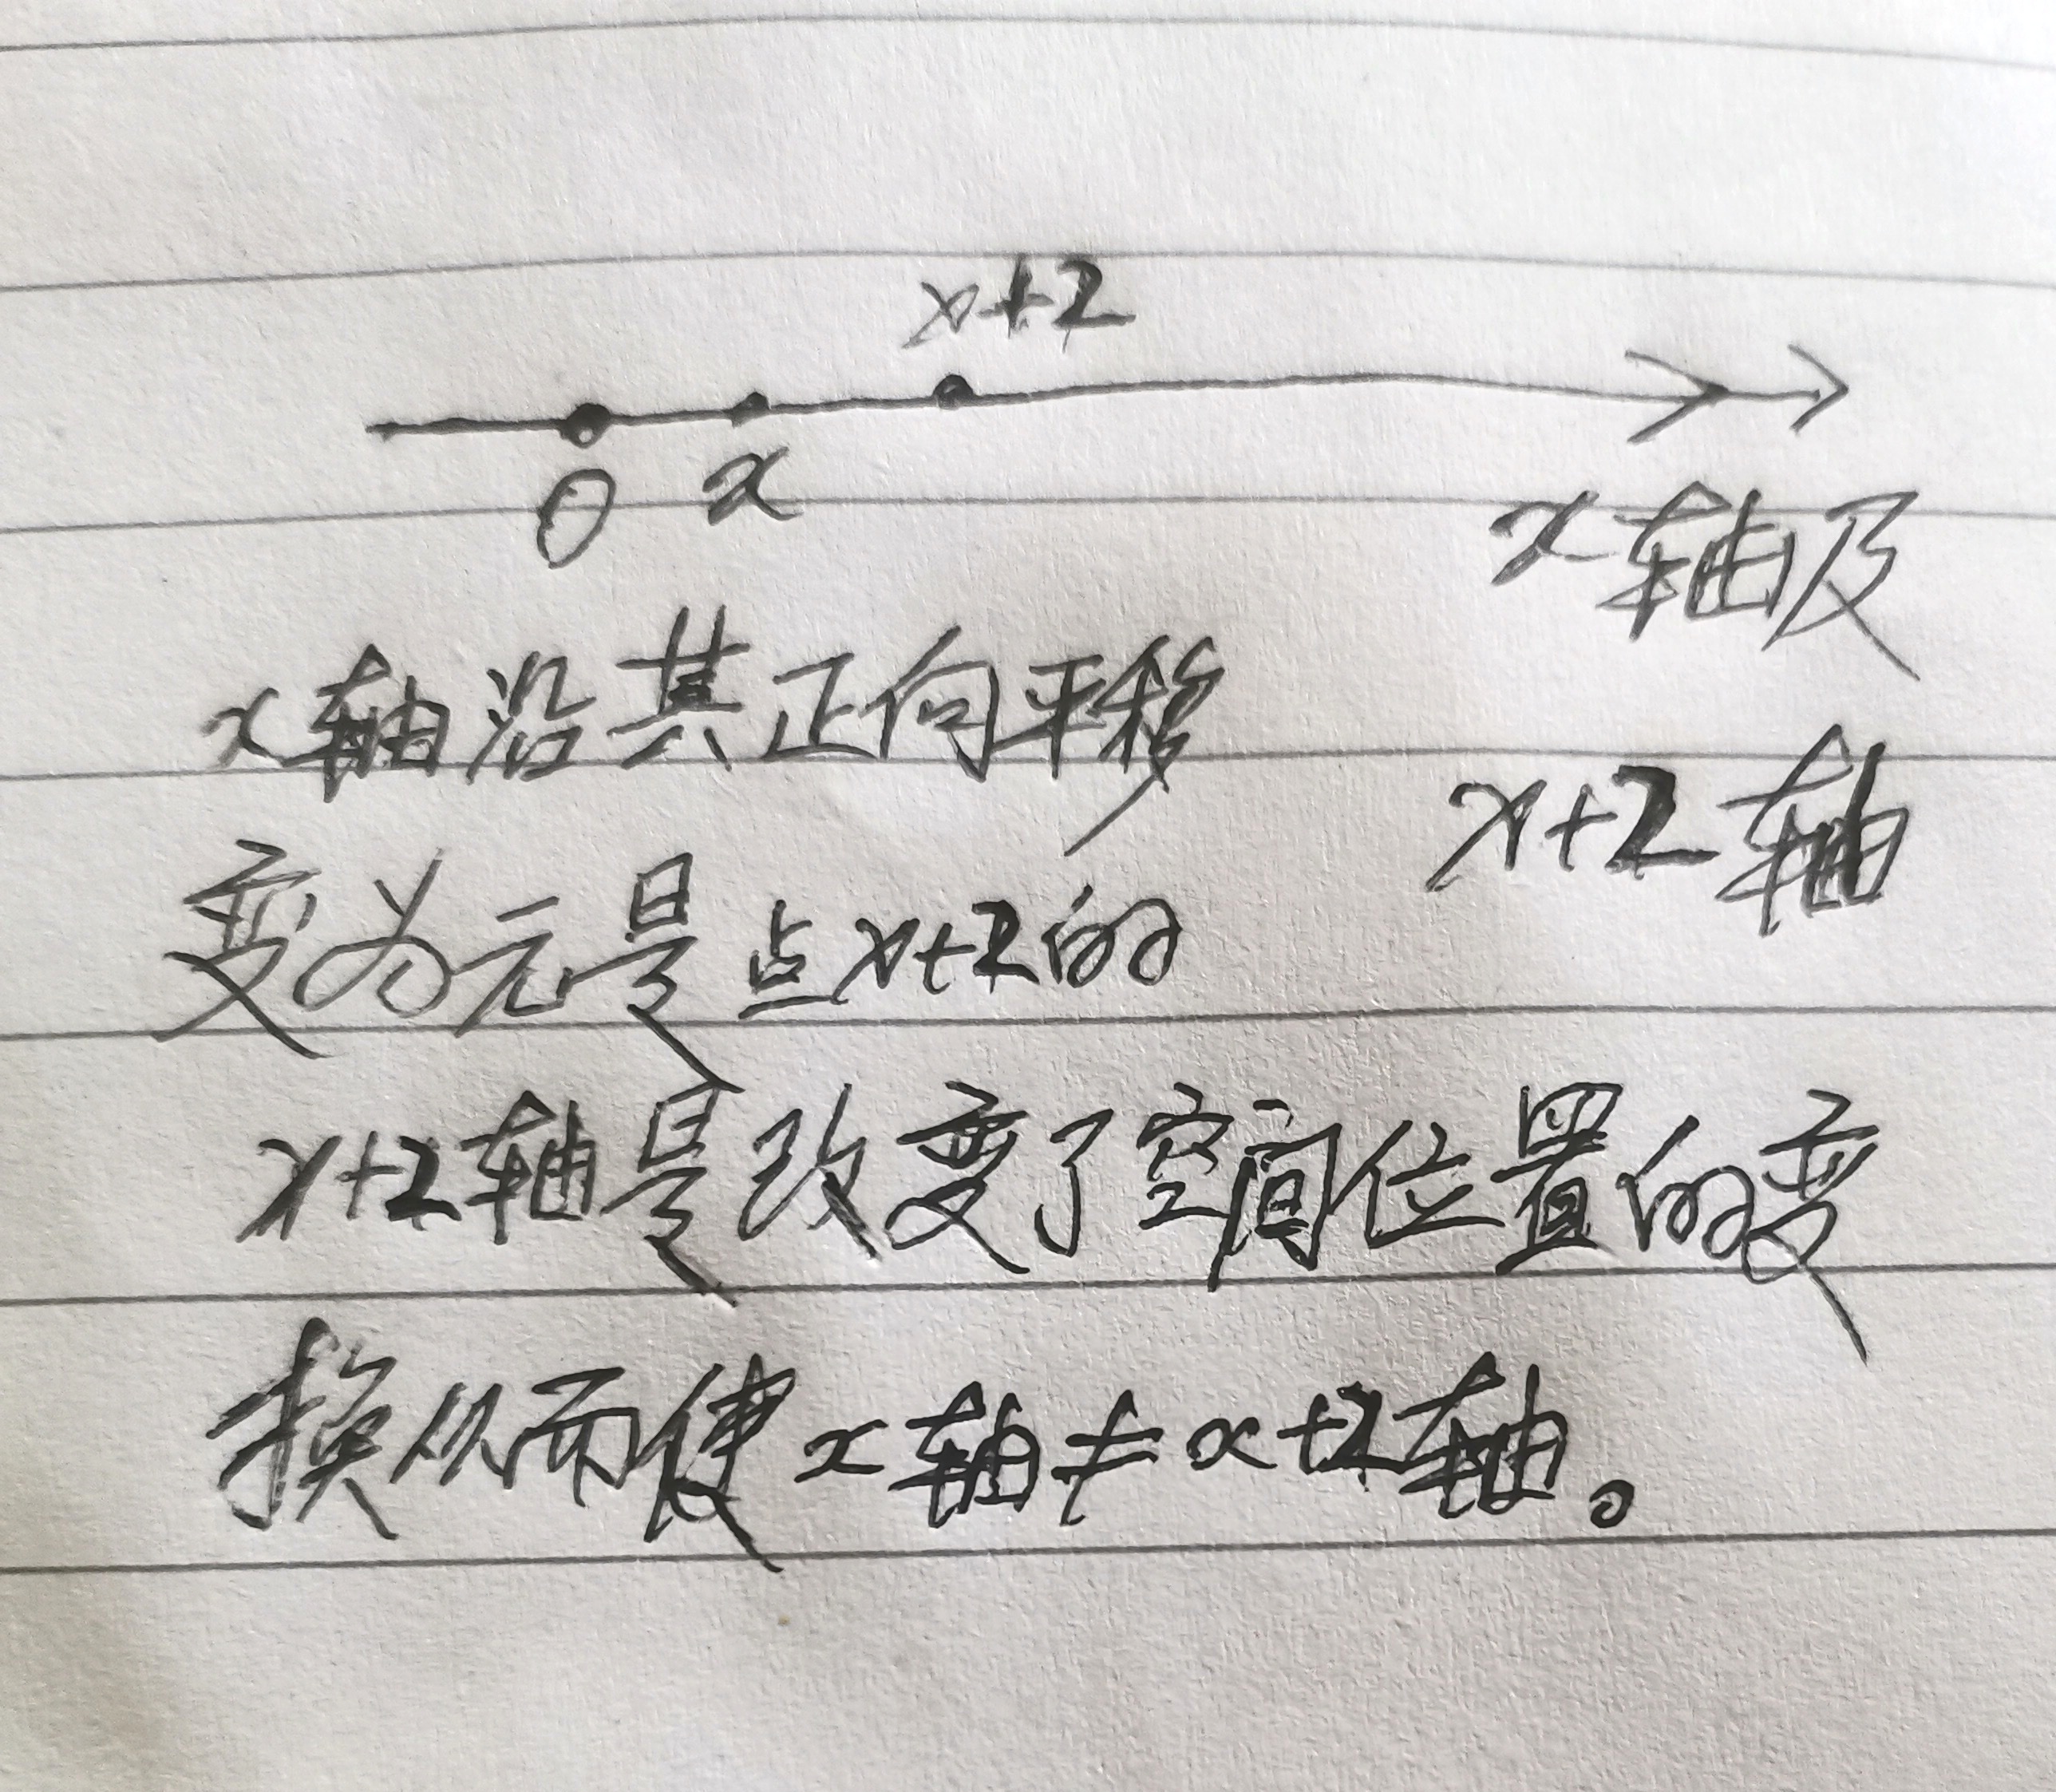 x+2
0 x
x轴及
x+2轴
x轴沿其正向平移
变为元是点x+2的
x+2轴是改变了空间位置的变
换从而使x轴≠x+2轴。